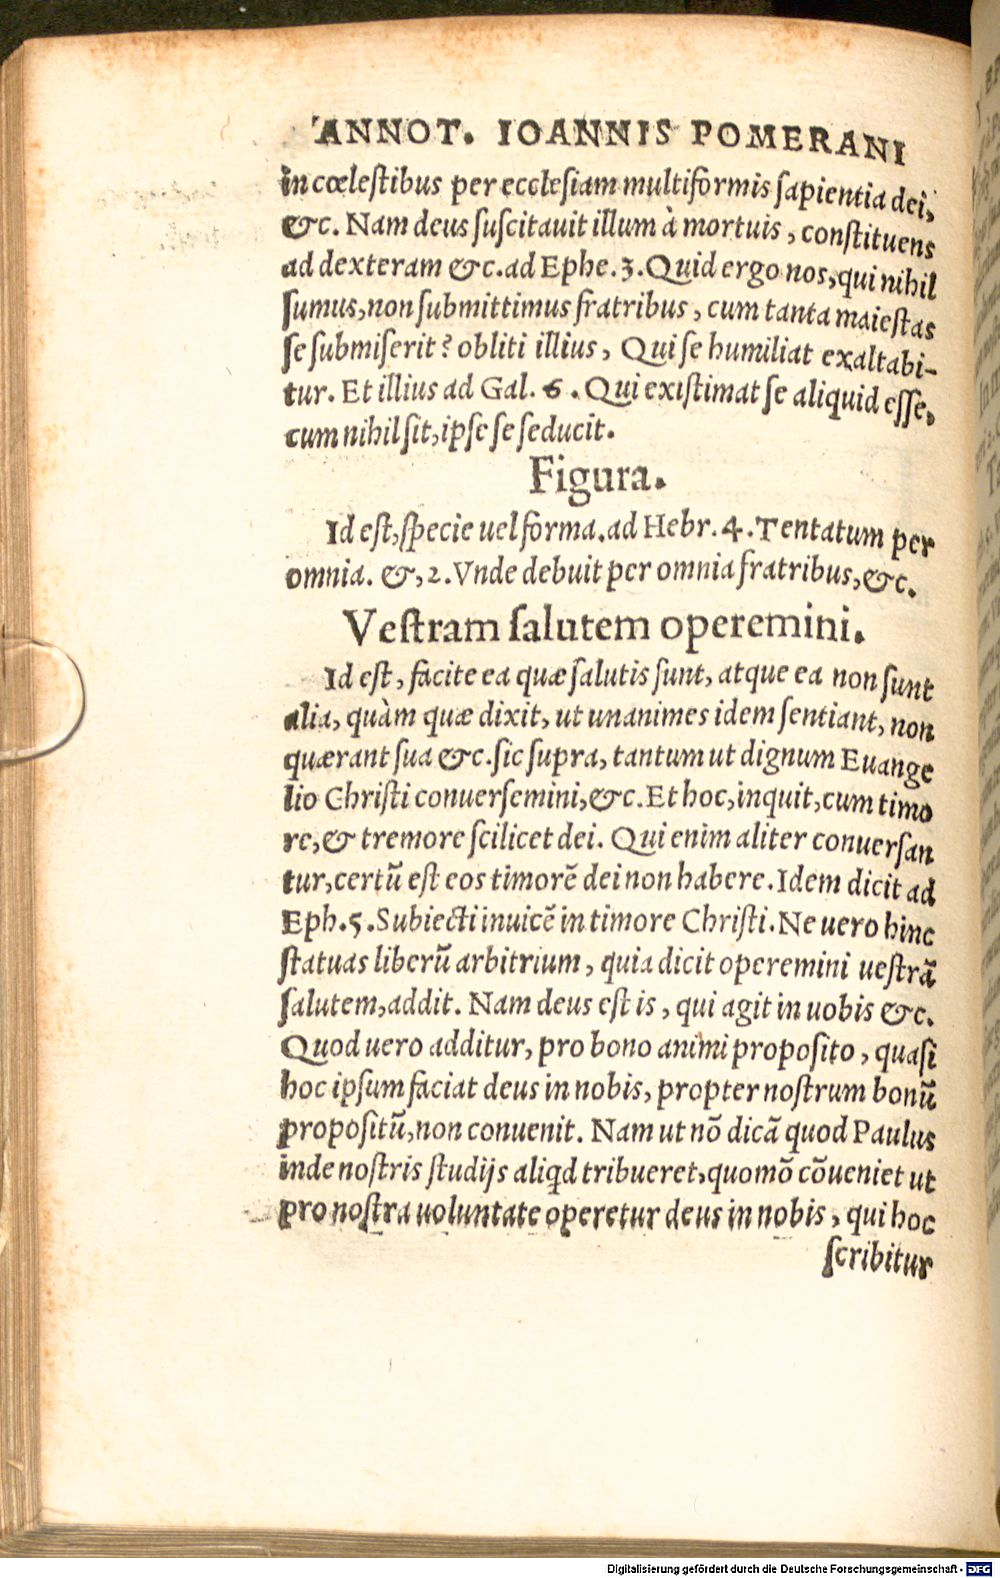 ANNOT. IOANNIS POMERANI
in cœlestibus per ecclesiam multiformis sapientia dei,
&c. Nam deus suscitauit illum à mortuis, constituens
ad dexteram &c. ad Ephe. 3. Quid ergo nos, qui nihil
sumus, non submittimus fratribus, cum tanta maiestas
se submiserit? obliti illius, Qui se humiliat exaltabi-
tur. Et illius ad Gal. 6. Qui existimat se aliquid esse,
cum nihil sit, ipse se seducit.
Figura.
Id est, specie uel forma. ad Hebr. 4. Tentatum per
omnia. &, 2. Vnde debuit per omnia fratribus, &c.
Vestram salutem operemini.
Id est, facite ea quæ salutis sunt, atque ea non sunt
alia, quàm quæ dixit, ut unanimes idem sentiant, non
quærant sua &c. sic supra, tantum ut dignum Euange
lio Christi conuersemini, &c. Et hoc, inquit, cum timo
re, & tremore scilicet dei. Qui enim aliter conuersan
tur, certũ est eos timorẽ dei non habere. Idem dicit ad
Eph. 5. Subiecti inuicẽ in timore Christi. Ne uero hinc
statuas liberũ arbitrium, quia dicit operemini uestrã
salutem, addit. Nam deus est is, qui agit in uobis &c.
Quod uero additur, pro bono animi proposito, quasi
hoc ipsum faciat deus in nobis, propter nostrum bonũ
propositũ, non conuenit. Nam ut nõ dicã quod Paulus
inde nostris studijs aliqd tribueret, quomõ cõueniet ut
pro nostra uoluntate operetur deus in nobis, qui hoc
scribitur
Digitalisierung gefördert durch die Deutsche Forschungsgemeinschaft - DFG